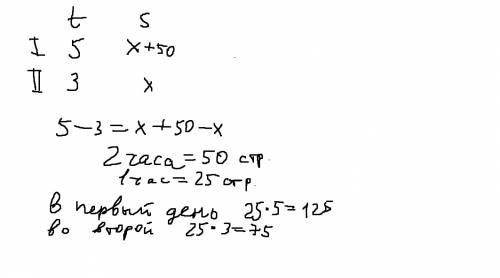 t s
I 5 x+50
II 3 x
5-3=x+50-x
2 часа=50 стр.
1 час=25 стр.
в первый день 25·5=125
во второй 25·3=75